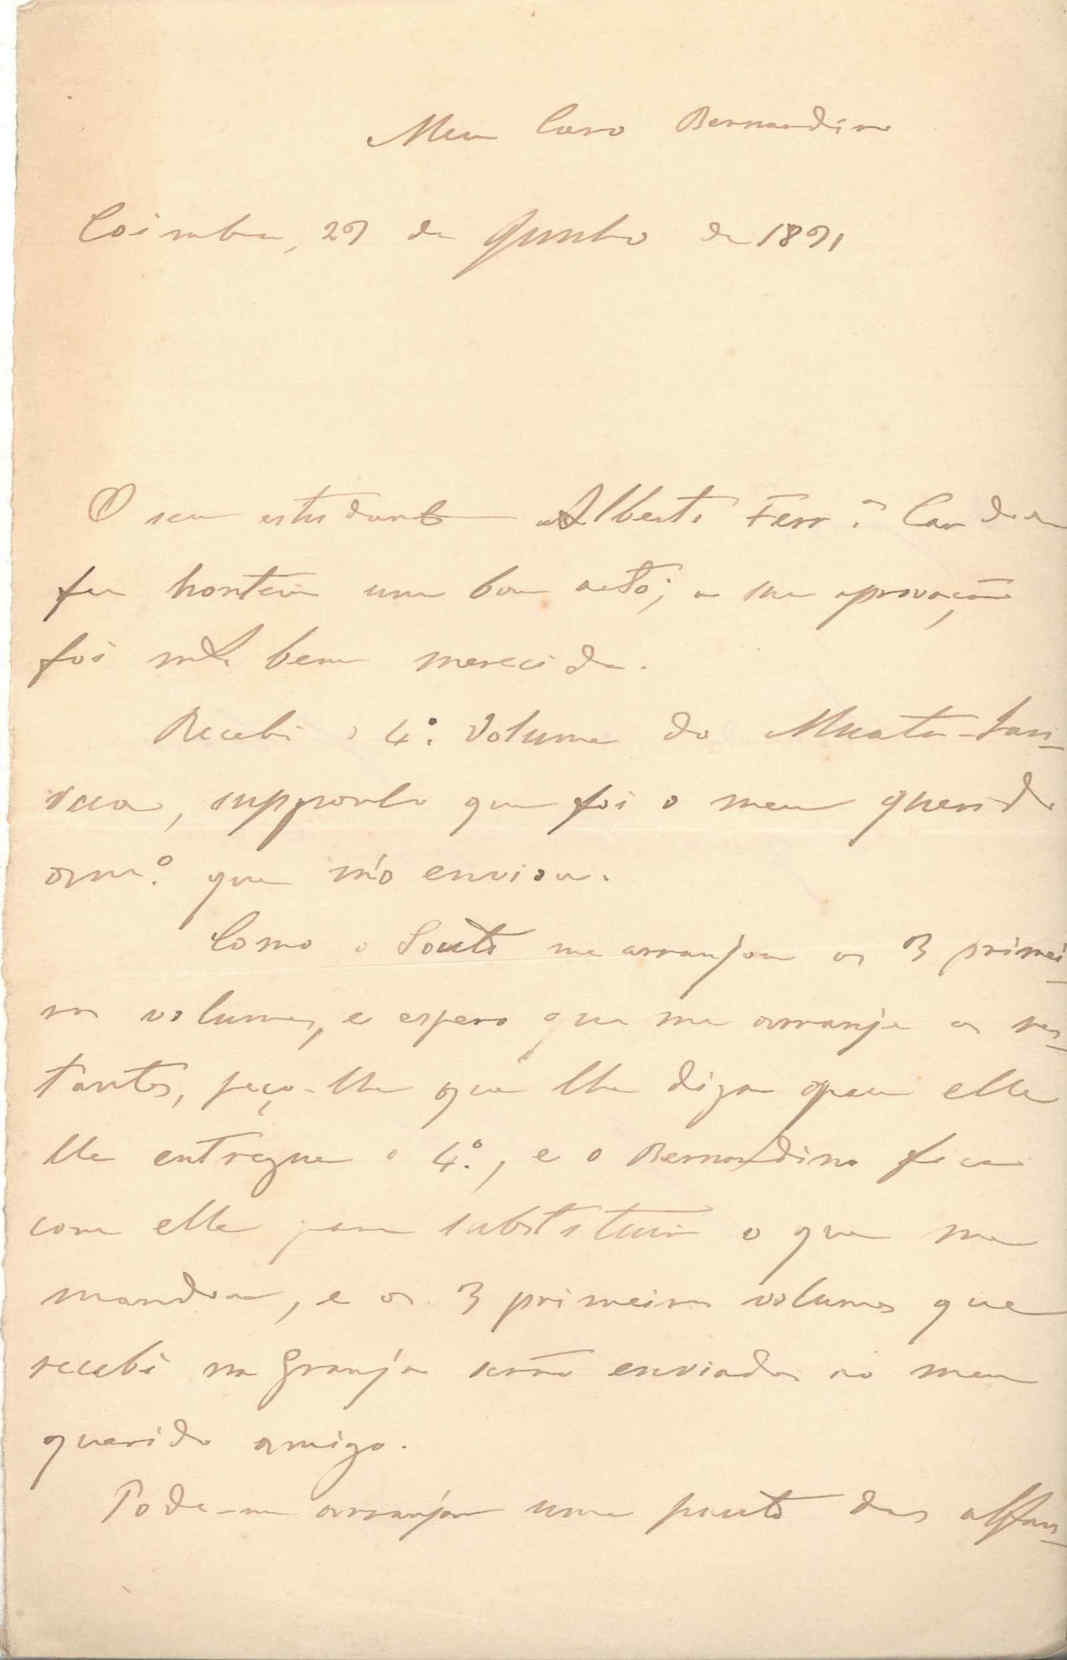 Meu Caro Bernardino
Coimbra, 27 de Junho de 1891
O seu estudante Alberto Ferr.ª Can dia
fez hontem um bom acto; a sua aprovação
foi mto bem merecida.
Recebi o 4.º volume do Muata-Ian-
vua, supponho que foi o meu querido
am.º que m'o enviou.
Como o Souto me arranjou os 3 primei-
ros volumes, e espero que me arranje os res-
tantes, peço-lhe que lhe diga que elle
lhe entregue o 4.º, e o Bernardino fica
com elle para substituir o que me
mandou, e os 3 primeiros volumes que
recebi na Granja serão enviados ao meu
querido amigo.
Pode-me arranjar uma pauta das alfan-